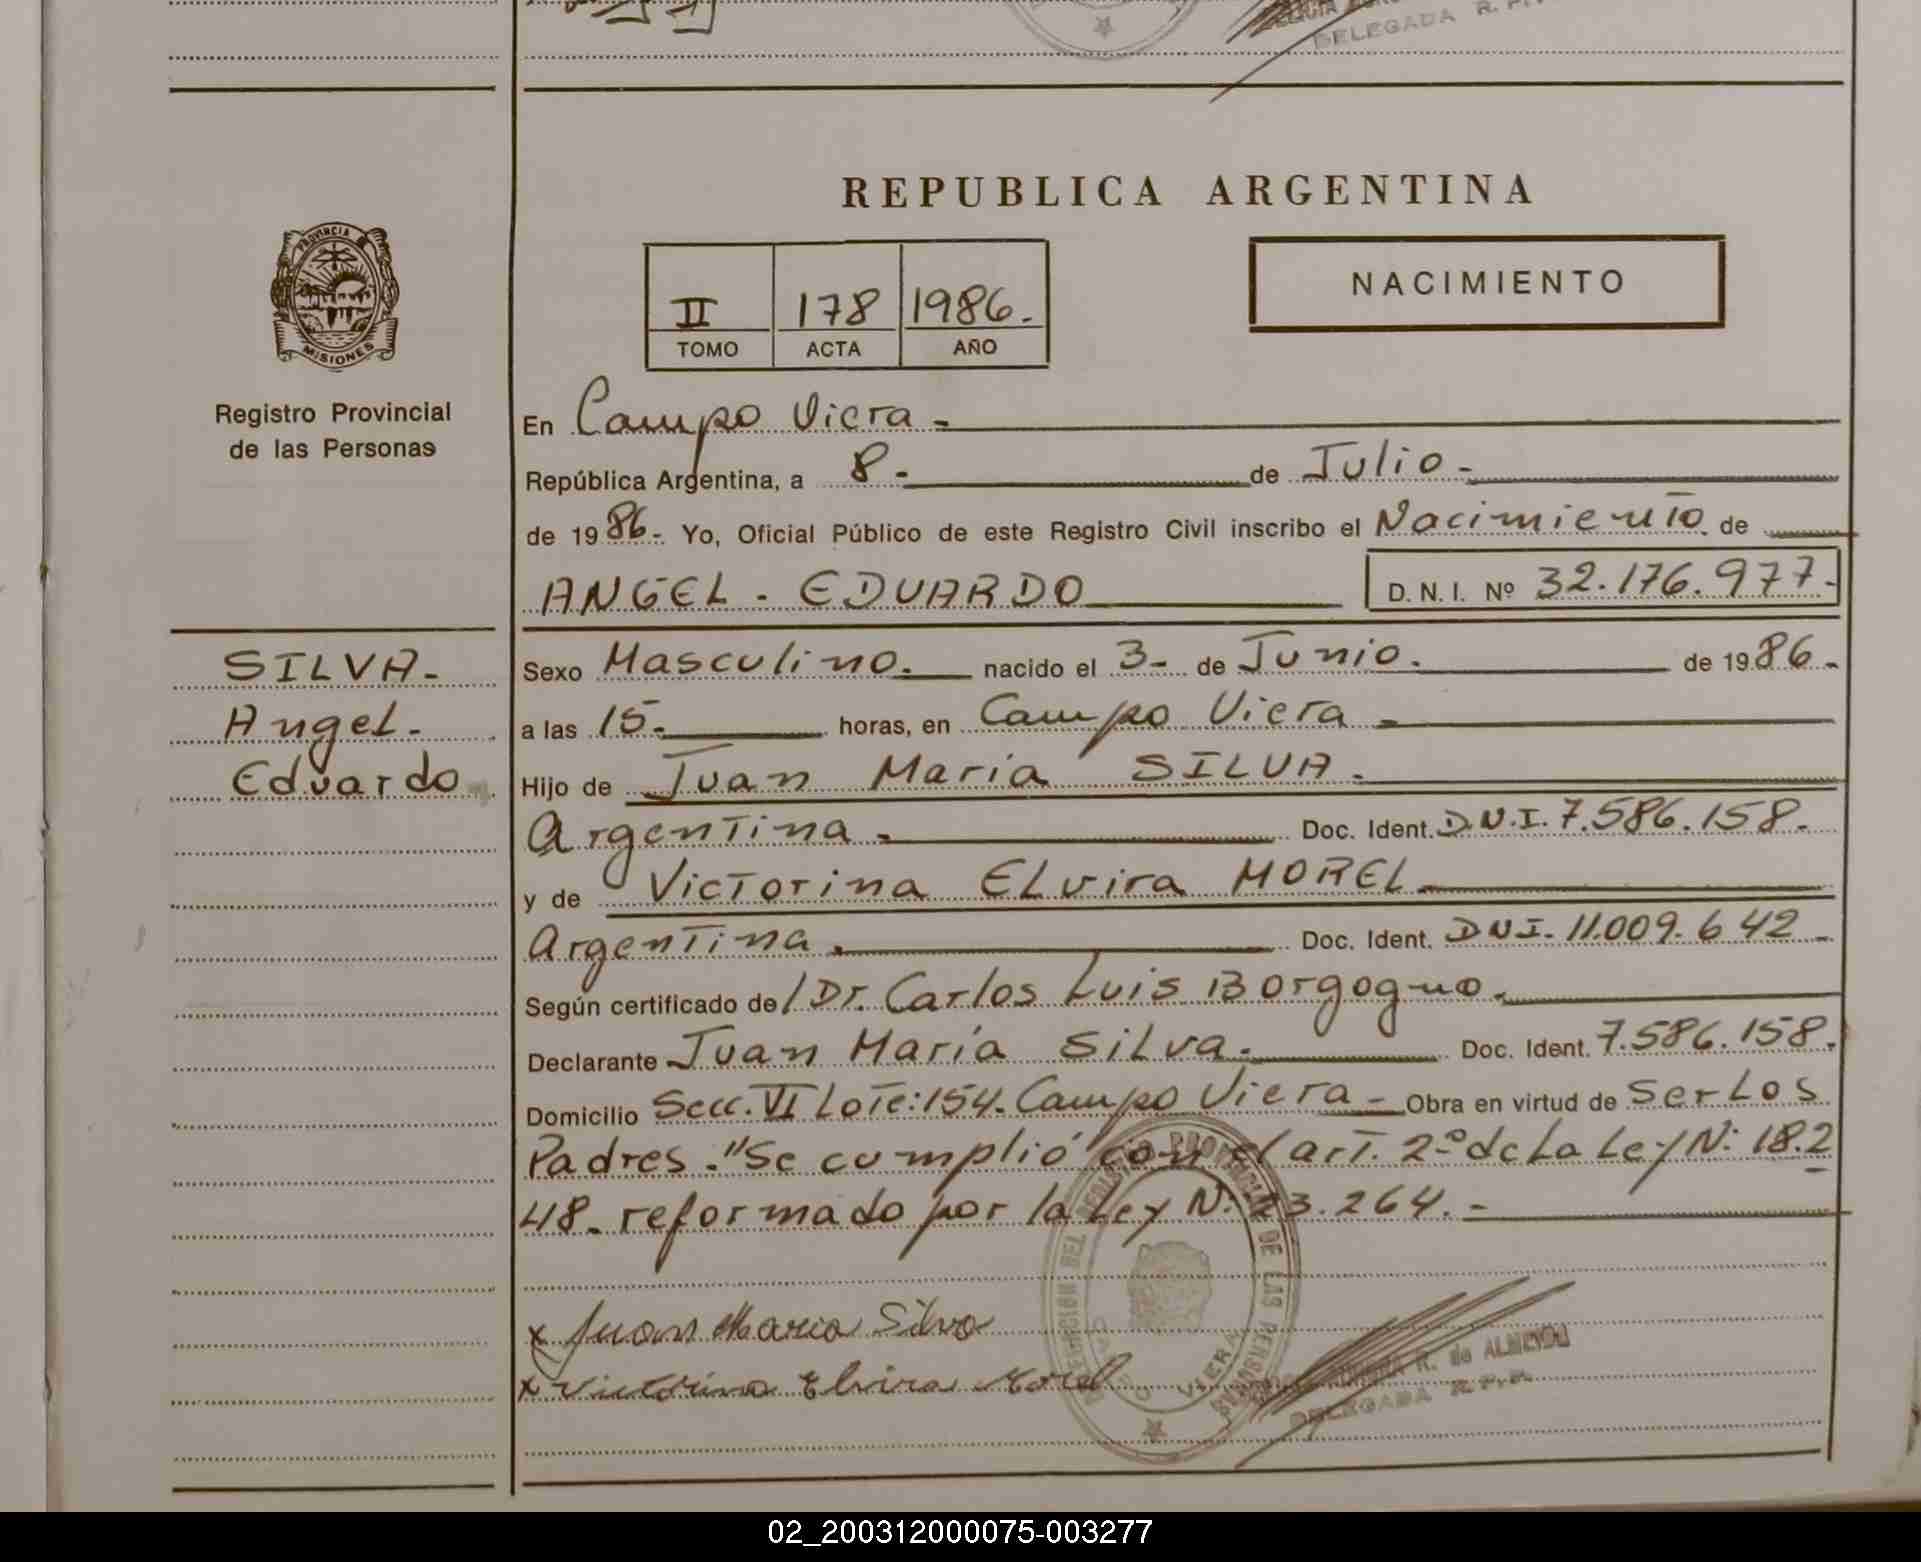 DELEGADA R. P.
REPUBLICA ARGENTINA
PROVINCIA DE
MISIONES
II 178 1986.
TOMO ACTA AÑO
NACIMIENTO
Registro Provincial
de las Personas
En Campo Viera -
República Argentina, a 8 - de Julio -
de 1986 - Yo, Oficial Público de este Registro Civil inscribo el Nacimiento de
ANGEL - EDUARDO D. N. I. Nº 32.176.977 -
SILVA -
Angel -
Eduardo
Sexo Masculino. nacido el 3 - de Junio. de 1986 -
a las 15 - horas, en Campo Viera -
Hijo de Juan Maria SILVA.
Argentina - Doc. Ident. D.N.I. 7.586.158 -
y de Victorina Elvira MOREL
Argentina. Doc. Ident. DNI. 11.009.642 -
Según certificado de / Dr. Carlos Luis Borgogno.
Declarante Juan María Silva. Doc. Ident. 7.586.158.
Domicilio Secc. VI Lote: 154. Campo Viera - Obra en virtud de ser Los
Padres. "Se cumplió con el art. 2º de La Ley N: 18.2
48 - reformado por la Ley N: 23.264. -
x Juan Maria Silva
x Victorina Elvira Morel
DELEGACION DEL REGISTRO PROVINCIAL DE LAS PERSONAS
CAMPO VIERA
R. de ALMEIDA
DELEGADA R. P. P.
02_200312000075-003277